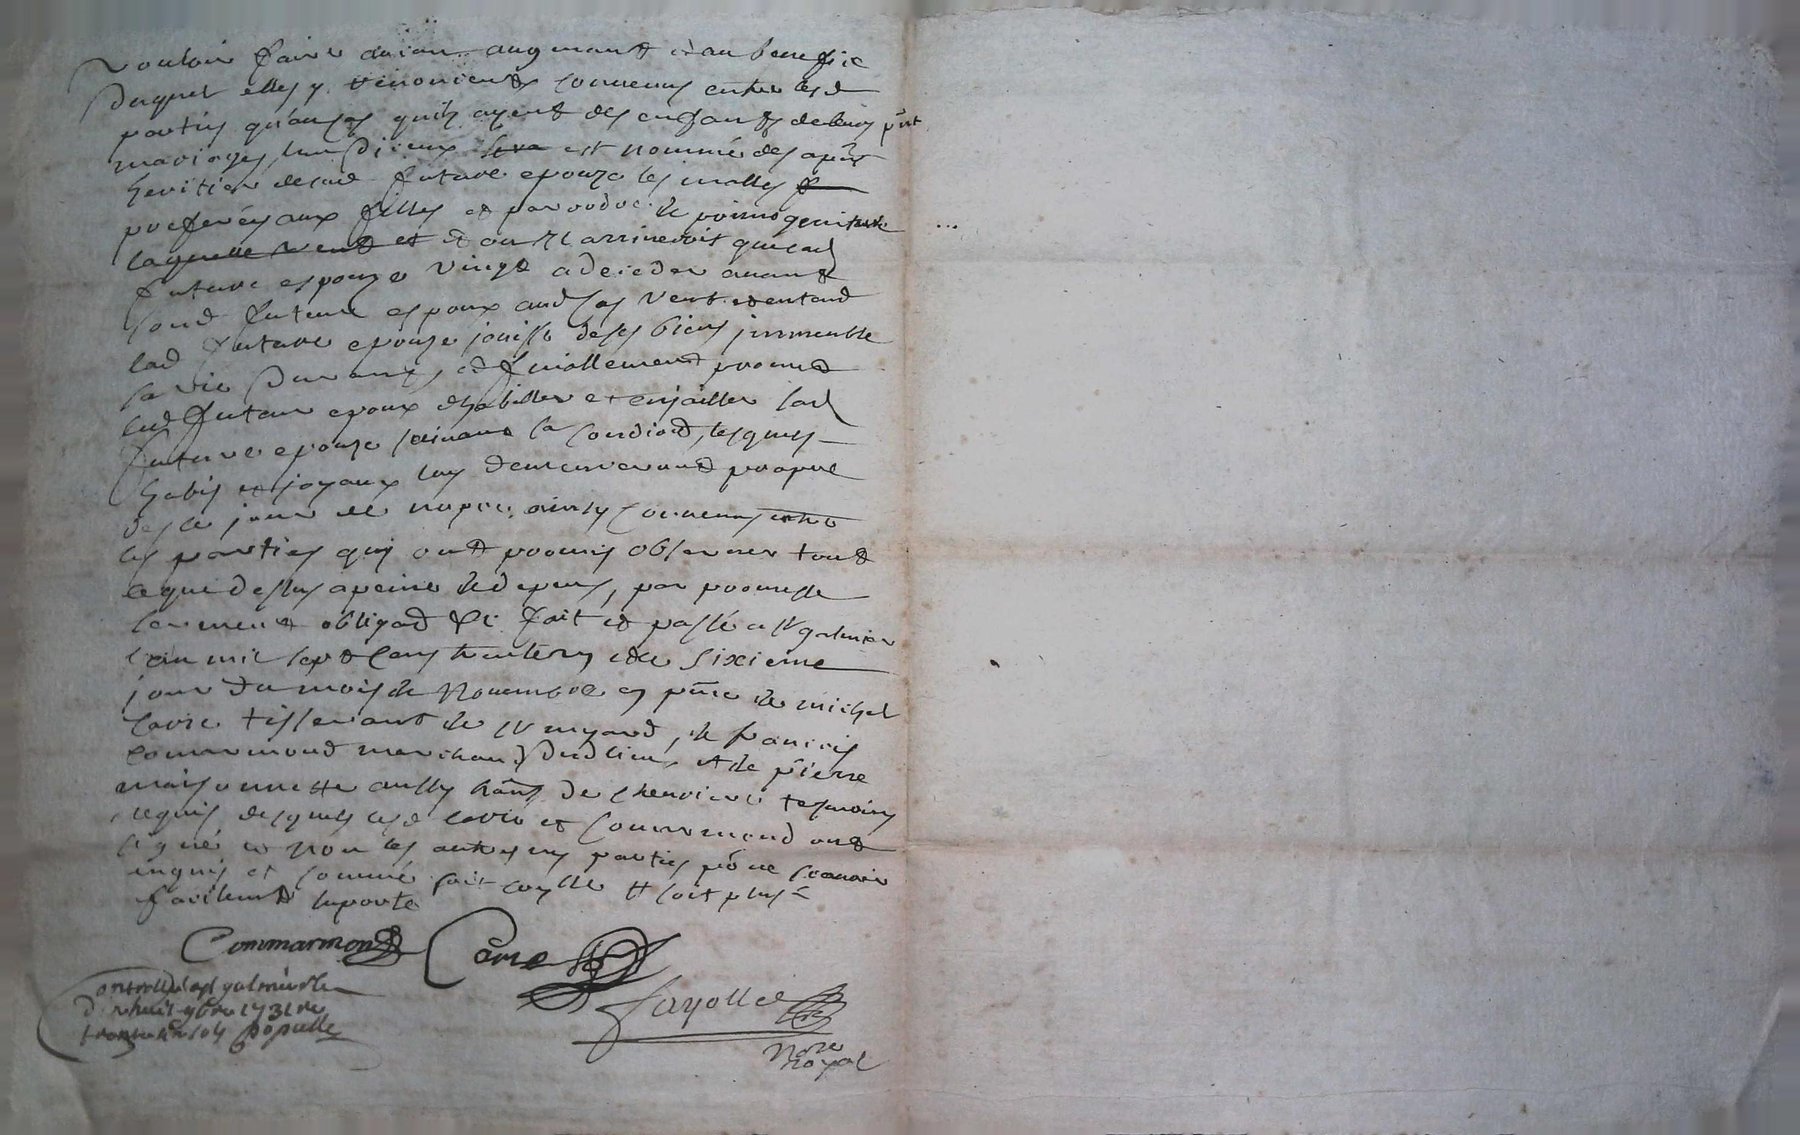 vouloir faire aucun augmant et au benefice
duquel elles y renoncient convenus entre lesd
parties qu'au cas quils ayent des enfants de leur pnt
mariage, lun diceux est nommé des apnt
heritier de lad future epouze les malles
preferés aux filles et par ordre de primogeniture
laquelle veut et et ou il arriveroit que lad
future espouze vingt a deceder avant
sond futeur espoux aud cas veut et entend
lad future epouze jouisse de ses biens immeuble
sa vie durant, et finallement promet
led futeur epoux dhabiller et enjailler lad
future epouze suivant sa condiond, lesquels
habis et joyaux luy demeureront propre
des le jour de nopce, ainsy convenus entre
les parties quy ont promis observer tout
ce que dessus a peine de depens, par promesse
serment obligaod &c fait et passé a St galmier
l'an mil sept cens trente un et le sixieme
jour du mois de novembre en pnce de michel
Carre tisserant de St mejard, de francois
Commarmond marchand dud lieu, et de pierre
maisonnette aussy hant de chevriere tesmoins
requis desquels lesd Carre et Commarmond ont
signé et non les autres ny parties pour ne scavoir
enquis et sommé soit controllé et soit plus
facilement raporté
Commarmond Carre
Controllé a St galmier le
dix huit 9bre 1731 Re
Populle
Fayolle
Nore
Royal